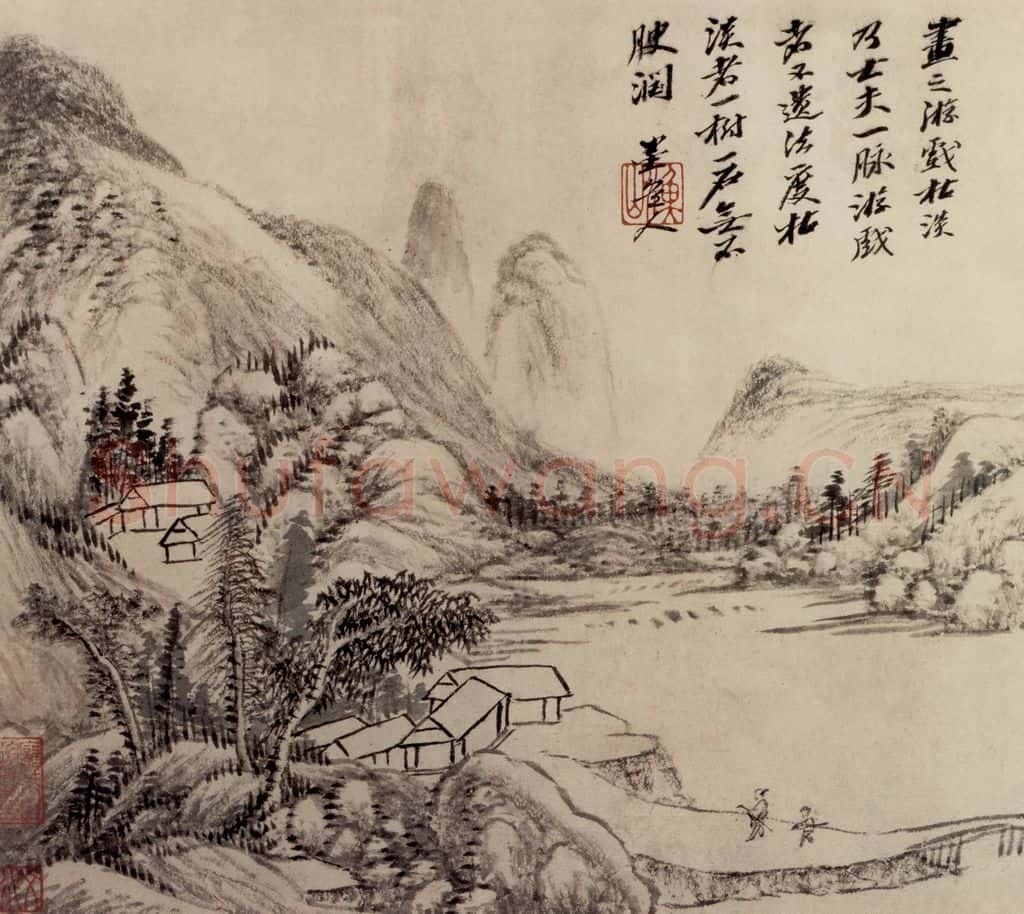 畫之游戲枯淡
乃士夫一脈游戲
者不遺法度枯
淡者一樹一石無不
腴潤
Shufawang.CN